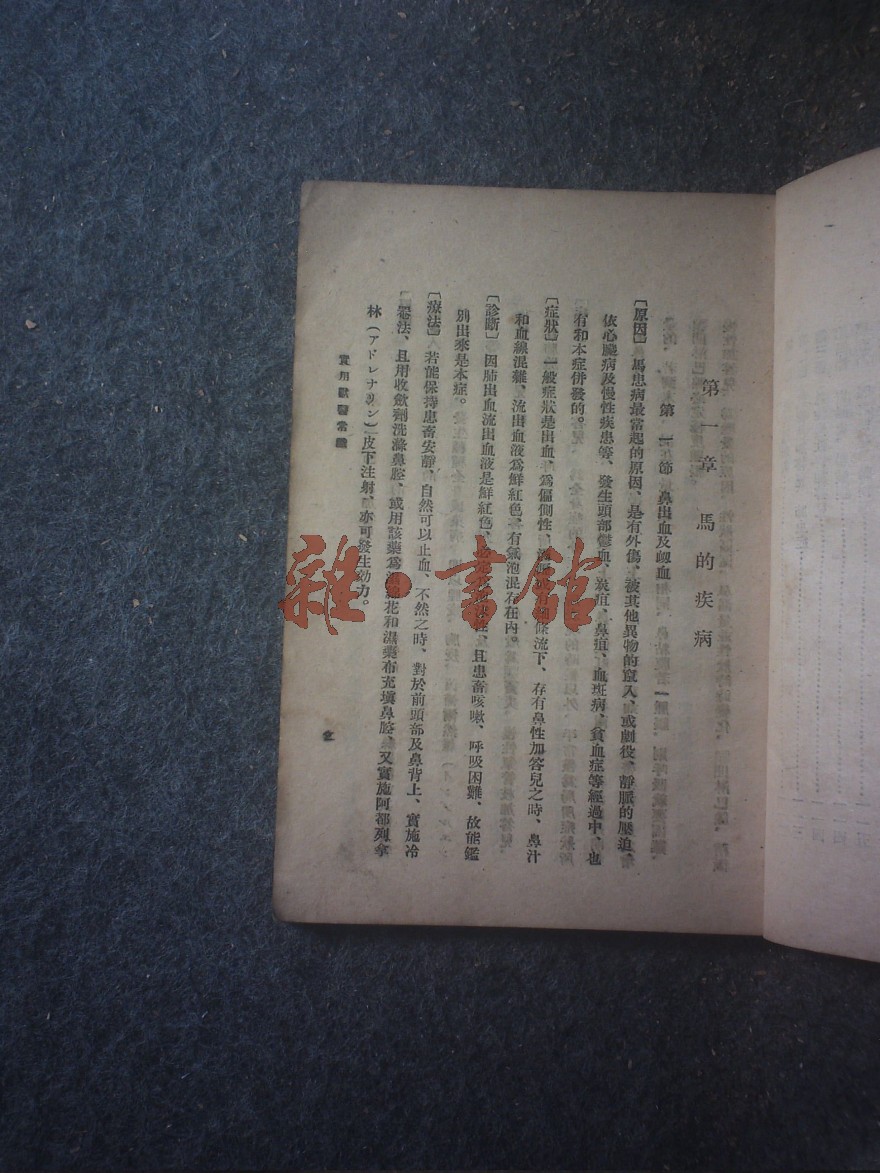 第一章 馬的疾病
第一節 鼻出血及衂血
[原因] 馬患病最當起的原因、是有外傷、被其他異物的竄入、或劇役、靜脈的壓迫
依心臟病及慢性疾患等、發生頭部鬱血、炭疽、鼻疽、血斑病、貧血症等經過中、也
有和本症併發的。
[症狀] 一般症狀是出血、爲偏側性、條流下、存有鼻性加答兒之時、鼻汁
和血線混雜、流出血液爲鮮紅色、有氣泡混存在內。
[診斷] 因肺出血流出血液是鮮紅色、且患畜咳嗽、呼吸困難、故能鑑
別出來是本症。
[療法] 若能保持患畜安靜、自然可以止血、不然之時、對於前頭部及鼻背上、實施冷
罨法、且用收斂劑洗滌鼻腔、或用該藥爲花和濕藥布充塡鼻腔、又實施阿都列拿
林(アドレナリン)皮下注射、亦可發生効力。
實用獸醫常識
雜·書館